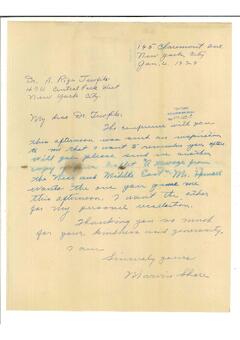 195 Claremont Ave
New York City
Jan. 6, 1929
Dr. A. Riza Tewfik
Central Park West
New York City
My dear Dr. Tewfik,
The conference with you
this afternoon was such an inspiration
to me that I want to remember you often
Will you please send me another
copy from the
the Near and Middle East. Mr.
wants the one you gave me
this afternoon. I want the other
for my personal collection.
Thanking you so much
for your kindness and generosity.
I am
Sincerely yours
Marvin Shore